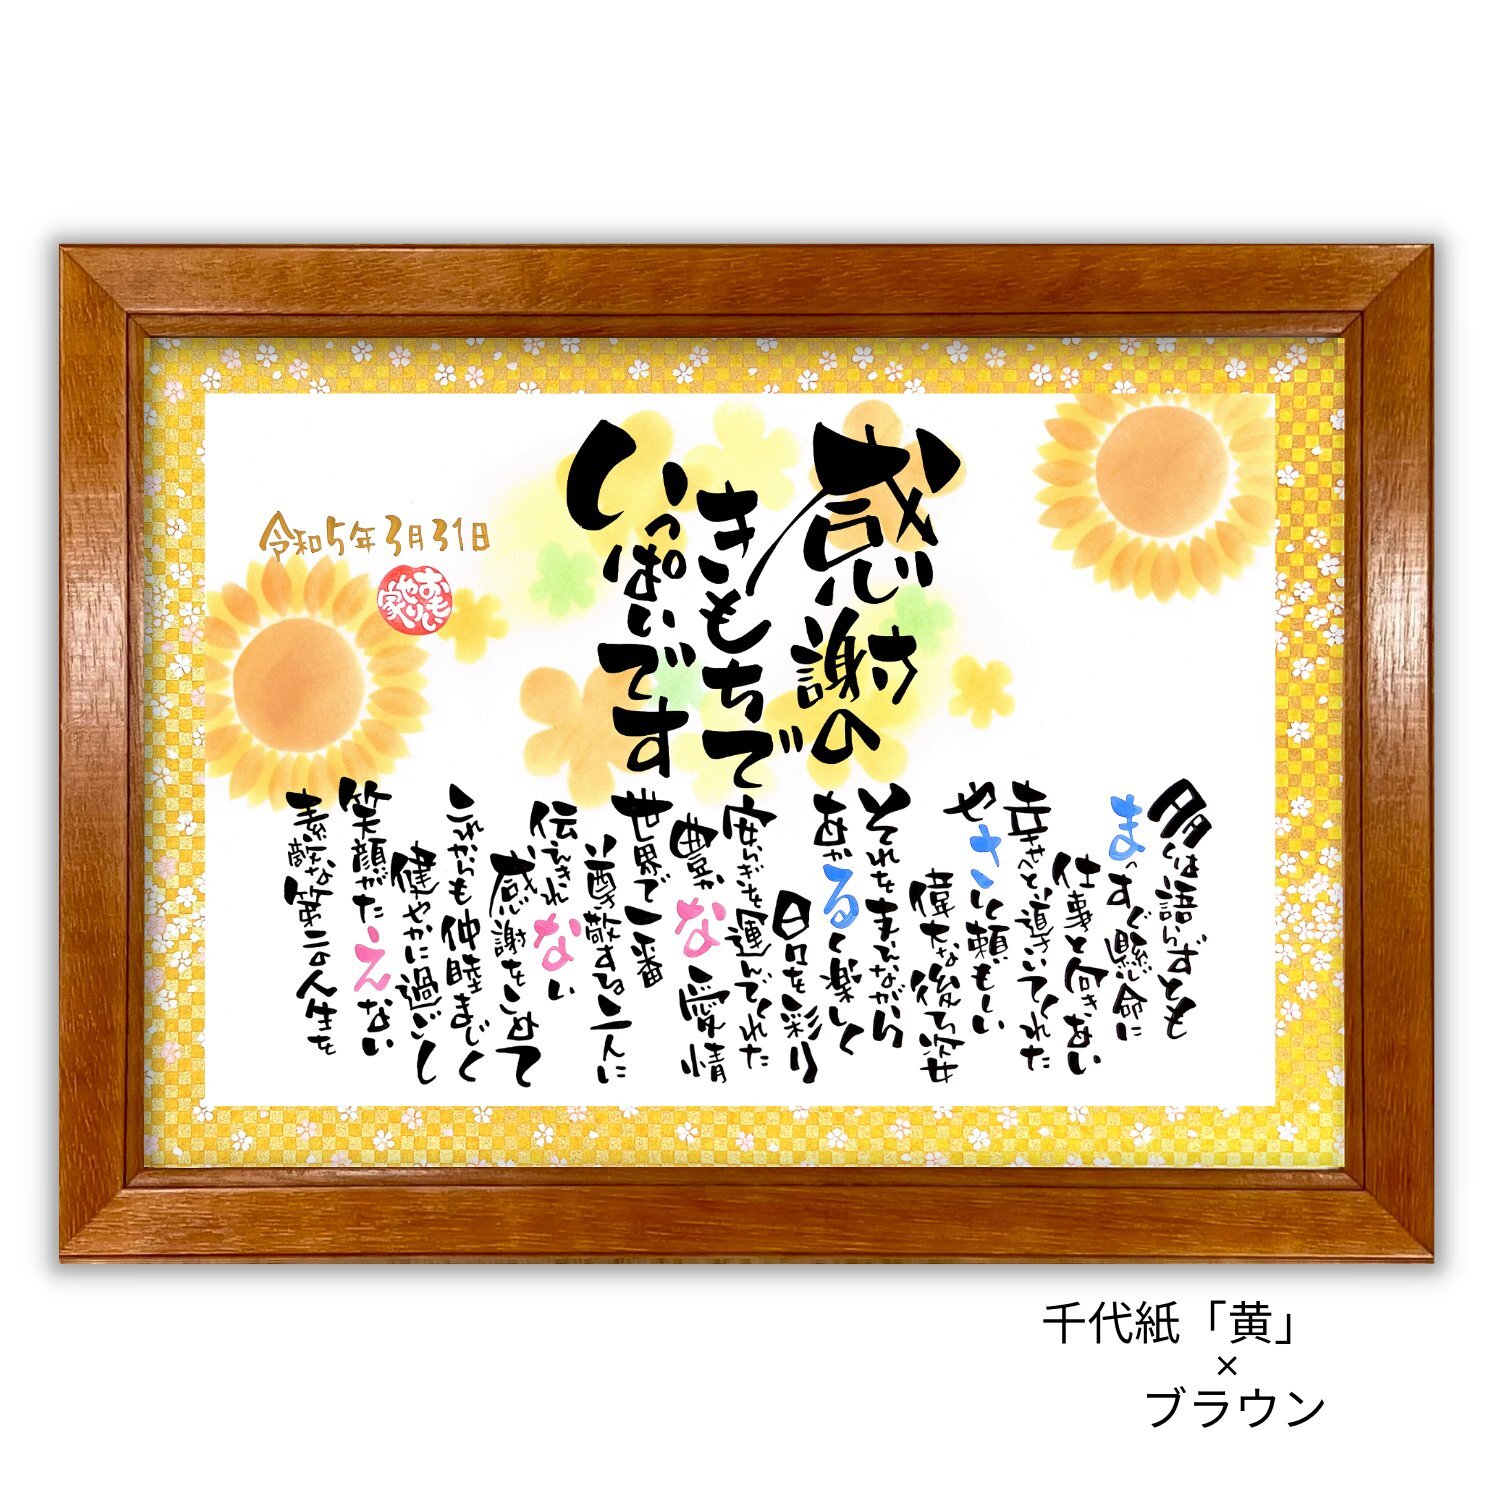 感謝の
きもちで
いっぱいです
多くは語らずとも
まっすぐ懸命に
仕事と向きあい
幸せへと導いてくれた
やさしく頼もしい
偉大な後ろ姿
それをまたながら
あかるく楽しく
日々を彩り
安らぎを運んでくれた
豊かな愛情
世界で一番
尊敬する二人に
伝えきれない
感謝をこめて
これからも仲睦まじく
健やかに過ごし
笑顔がたえない
素敵な第二の人生を
令和5年3月31日
おもいやりい家
千代紙「黄」
×
ブラウン